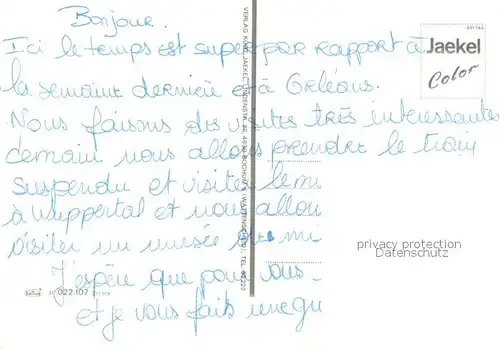 Bonjour.
Ici le temps est super par rapport à
la semaine dernière et à Orléans.
Nous faisons des visites très interessantes
demain nous allons prendre le train
suspendu et visiter le mi
à wuppertal et nous allon
visiter un musée
J'espère que pour vous
et je vous fais une gu
VERLAG KARL JAEKEL
TEL.
Jaekel
Color
privacy protection
Datenschutz
022.107